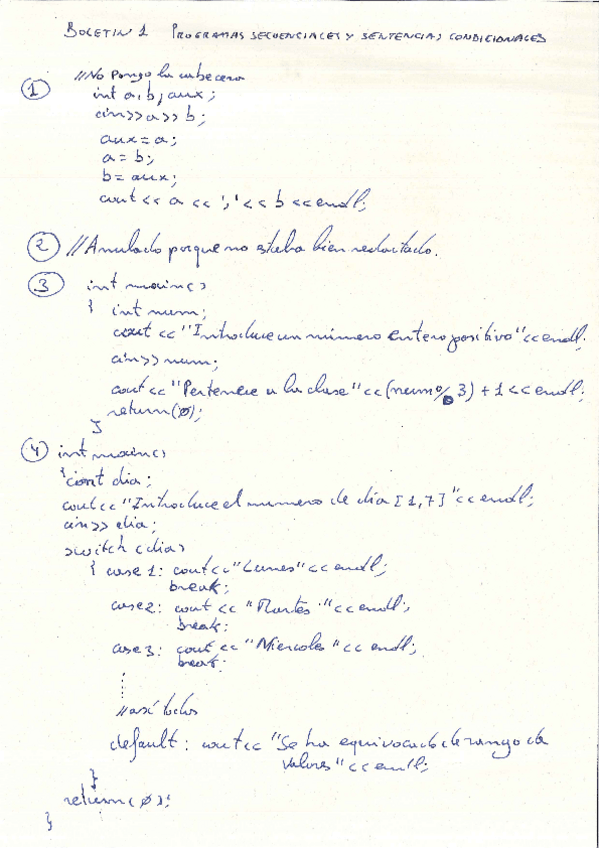 BOLETIN 1 PROGRAMAS SECUENCIALES Y SENTENCIAS CONDICIONALES
//No Pongo la cabecera
1 int a,b,aux;
cin>>a>>b;
aux=a;
a=b;
b=aux;
cout<<a<<','<<b<<endl;
2 //Anulado porque no estaba bien redactado.
3 int main()
{ int num;
cout<<"Introduce un número entero positivo"<<endl;
cin>>num;
cout<<"Pertenece a la clase"<<(num%3)+1<<endl;
return(0);
}
4 int main()
{ int dia;
cout<<"Introduce el numero de dia [1,7]"<<endl;
cin>>dia;
switch (dia)
{ case 1: cout<<"Lunes"<<endl;
break;
case 2: cout<<"Martes"<<endl;
break;
case 3: cout<<"Miercoles"<<endl;
break;
//así todos
default: cout<<"Se ha equivocado de rango de
valores"<<endl;
}
return(0);
}